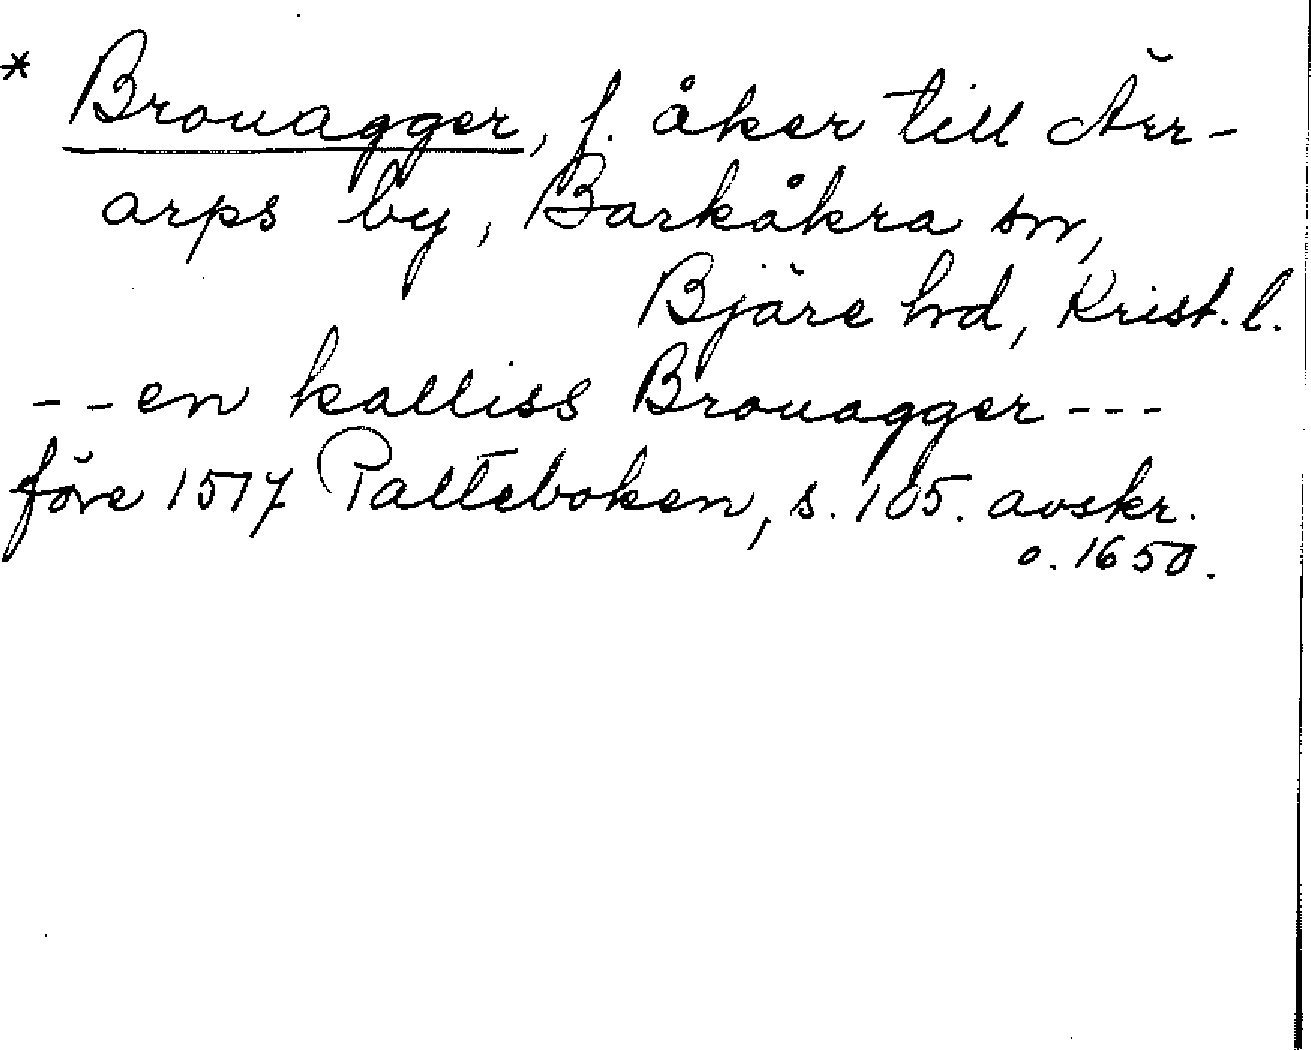 * Brouagger, f. åker till Ärr-
arps by, Barkåkra sn,
Bjäre hd, Krist. l.
-- en kalliss Brouagger ---
före 1517 Palteboken, s. 105. avskr.
o. 1650.